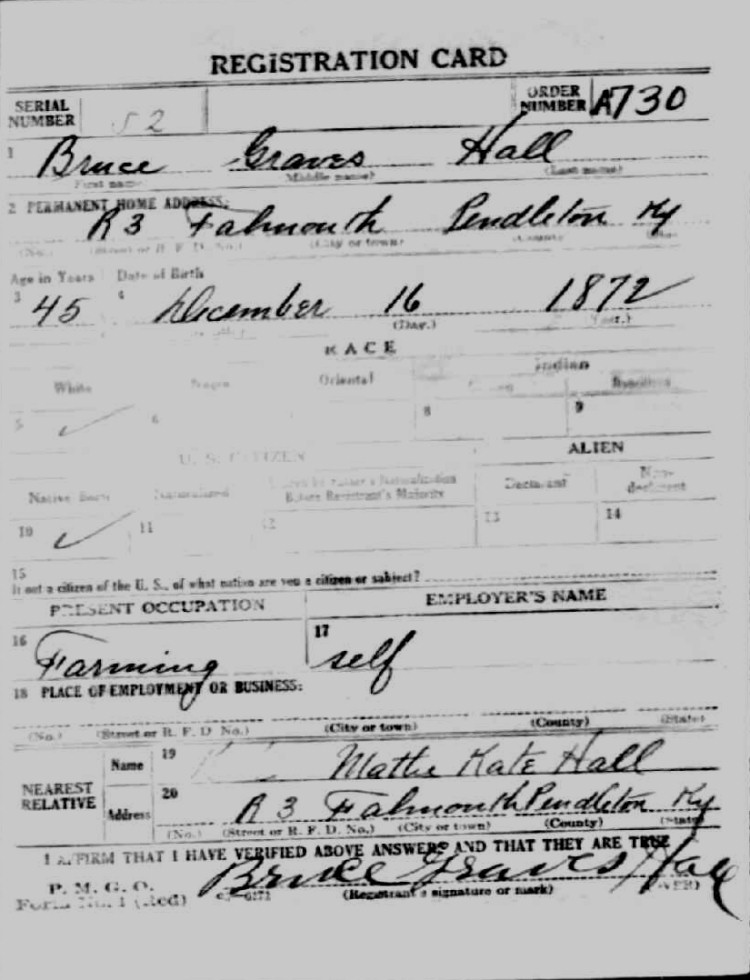 REGISTRATION CARD
SERIAL NUMBER 52 ORDER NUMBER A730
1 Bruce Graves Hall
(First name) (Middle name) (Last name)
2 PERMANENT HOME ADDRESS:
R 3 Falmouth Pendleton Ky
(No.) (Street or R. F. D. No.) (City or town) (County) (State)
Age in Years Date of Birth
3 45 4 December 16 1872
(Day.) (Year.)
RACE
White Negro Oriental Indian
Citizen Noncitizen
5 ✓ 6 8 9
U. S. CITIZEN ALIEN
Native Born Naturalized Citizen by Father's Naturalization Before Registrant's Majority Declarant Non-declarant
10 ✓ 11 12 13 14
15
If not a citizen of the U. S., of what nation are you a citizen or subject?
PRESENT OCCUPATION EMPLOYER'S NAME
16 Farming 17 self
18 PLACE OF EMPLOYMENT OR BUSINESS:
(No.) (Street or R. F. D No.) (City or town) (County) (State)
NEAREST RELATIVE Name 19 Mattie Kate Hall
Address 20 R 3 Falmouth Pendleton Ky
(No.) (Street or R. F. D. No.) (City or town) (County) (State)
I AFFIRM THAT I HAVE VERIFIED ABOVE ANSWERS AND THAT THEY ARE TRUE
P. M. G. O.
Form No. 1 (Red) Bruce Graves Hall
(Registrant's signature or mark) (OVER)